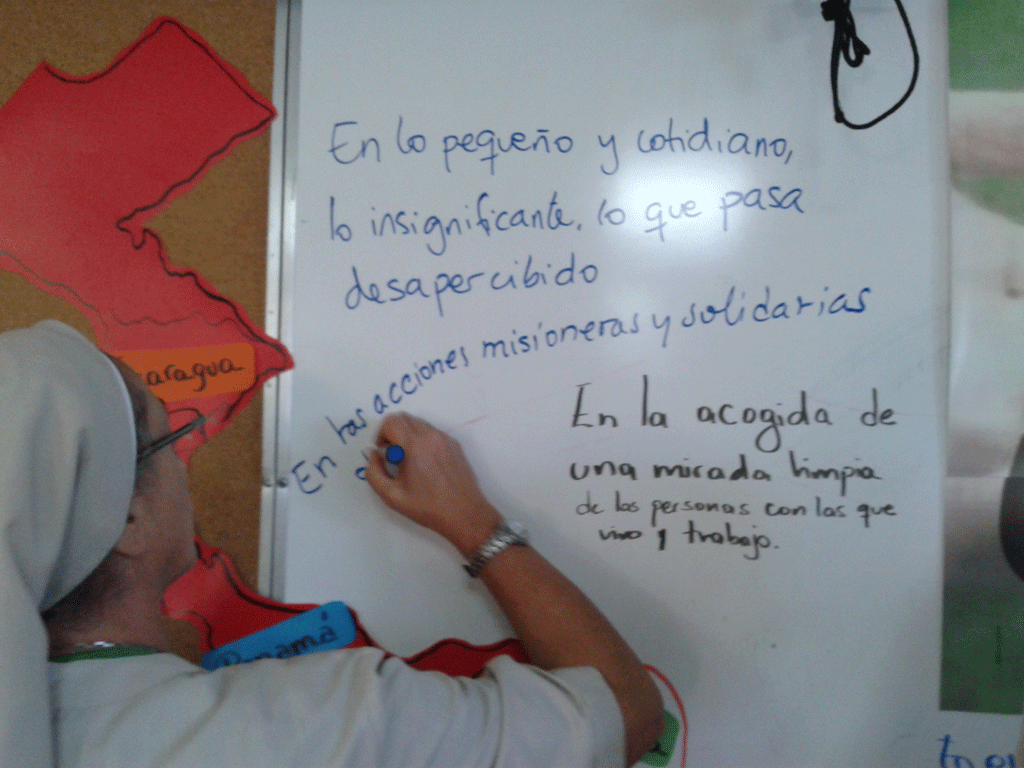 En lo pequeño y cotidiano,
lo insignificante, lo que pasa
desapercibido
En las acciones misioneras y solidarias
En la acogida de
una mirada limpia
de las personas con las que
vivo y trabajo.
aragua
Panamá